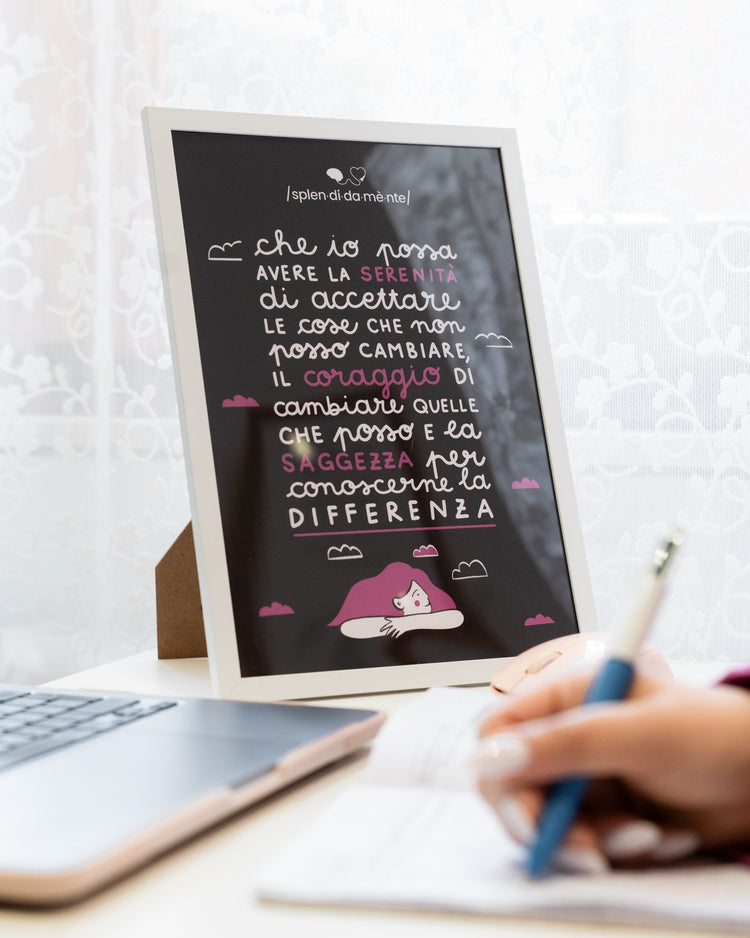 /splen·di·da·mè·nte/
che io possa
AVERE LA SERENITÀ
di accettare
LE cose CHE non
posso CAMBIARE,
IL coraggio DI
cambiare QUELLE
CHE posso E la
SAGGEZZA per
conoscerne la
DIFFERENZA